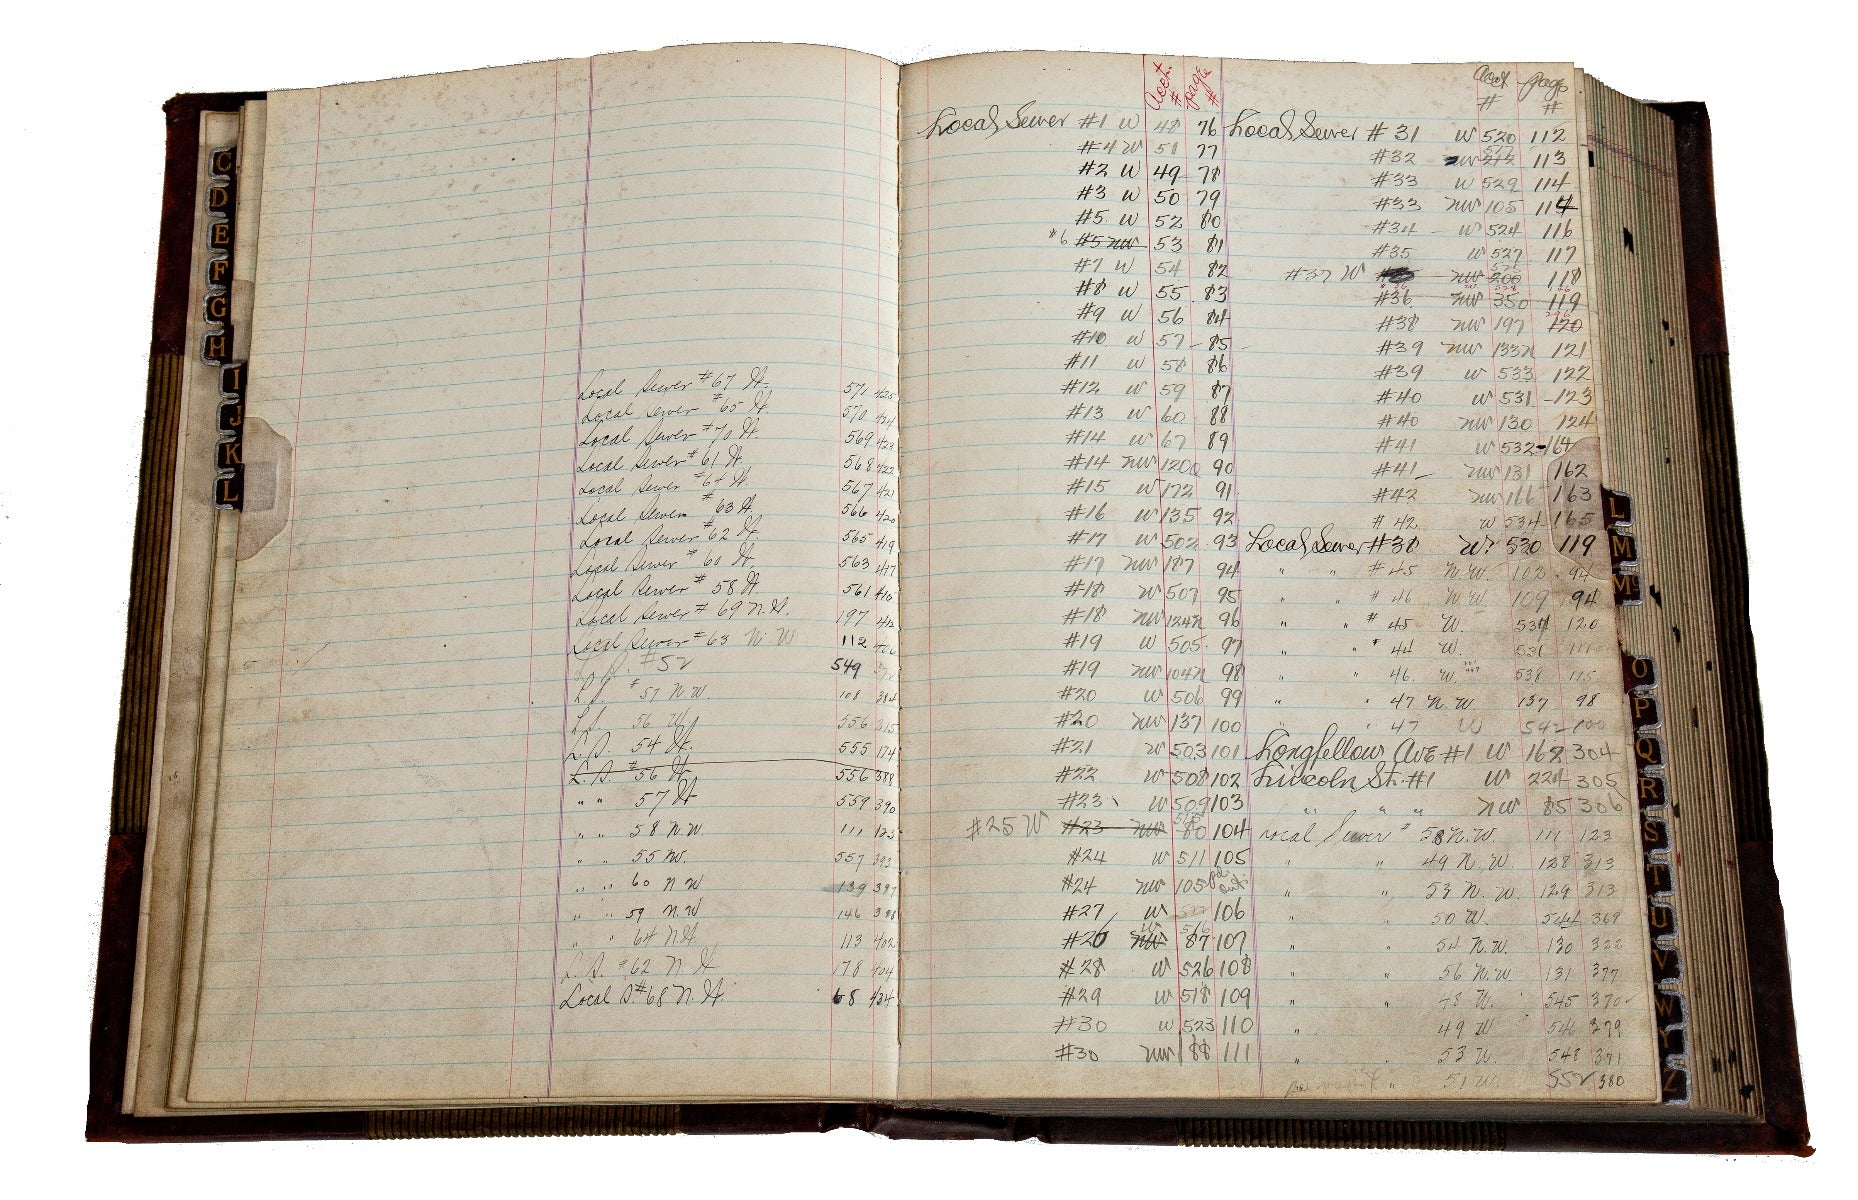 C
D
E
F
G
H
I
J
K
L
Local Sewer #67 St. 571 425
Local Sewer #65 St. 570 424
Local Sewer #70 St. 569 423
Local Sewer #61 St. 568 422
Local Sewer #64 St. 567 421
Local Sewer #63 St. 566 420
Local Sewer #62 St. 565 419
Local Sewer #60 St. 563 417
Local Sewer #58 St. 561 410
Local Sewer #69 N.St. 197 412
Local Sewer #63 N.W 112 406
L.S. #52 549
L.S. #57 N.W. 108 384
L.S. 56 W 556 315
L.S. 54 St. 555 174
L.S. #56 St 556 388
" " 57 St 559 390
" " 58 N.W. 111 123
" " 55 W. 557 393
" " 60 N W 139 397
" " 59 N.W 146 398
" " 64 N.St. 113 402
L.S. #62 N St 178 404
Local S. #68 N.St. 68 434
Acct. # page #
Local Sewer #1 W 48 76
#4 W 51 77
#2 W 49 78
#3 W 50 79
#5 W 52 80
#6 #5 NW 53 81
#7 W 54 82
#8 W 55 83
#9 W 56 84
#10 W 57 85
#11 W 58 86
#12 W 59 87
#13 W 60 88
#14 W 67 89
#14 NW 1200 90
#15 W 172 91
#16 W 135 92
#17 W 502 93
#17 NW 187 94
#18 W 507 95
#18 NW 124N 96
#19 W 505 97
#19 NW 104N 98
#20 W 506 99
#20 NW 137 100
#21 W 503 101
#22 W 508 102
#23 W 509 103
#25 W #23 NW 80 104
#24 W 511 105
#24 NW 105
#27 W 106
#26 NW 87 107
#28 W 526 108
#29 W 518 109
#30 W 523 110
#30 NW 88 111
Acct # page #
Local Sewer #31 W 520 112
#32 NW 212 517 113
#33 W 529 114
#33 NW 105 114
#34 W 524 116
#35 W 527 117
#37 W NW 200 118
#36 NW 350 119
#38 NW 197 120
#39 NW 133N 121
#39 W 533 122
#40 W 531 123
#40 NW 130 124
#41 W 532 164
#41 NW 131 162
#42 NW 166 163
#42 W 534 165
Local Sewer #38 W. 530 119
" " #45 N.W. 102 94
" " #46 N.W. 109 94
" " #45 W. 537 120
" " #44 W. 536 111
" " 46 W. 538 115
" " 47 N W 137 98
" " 47 W 542 100
Longfellow Ave #1 W 162 304
Lincoln St. #1 W 224 305
" " " NW 85 306
Local Sewer #58 N.W. 111 123
" " 49 N.W 128 313
" " 53 N.W. 129 313
" " 50 W. 544 369
" " 54 N.W. 130 322
" " 56 N.W 131 377
" " 48 W. 545 370
" " 49 W 546 379
" " 53 W. 548 371
" 51 W. 552 380
L
M
M
O
P
Q
R
S
T
U
V
W
Y
Z